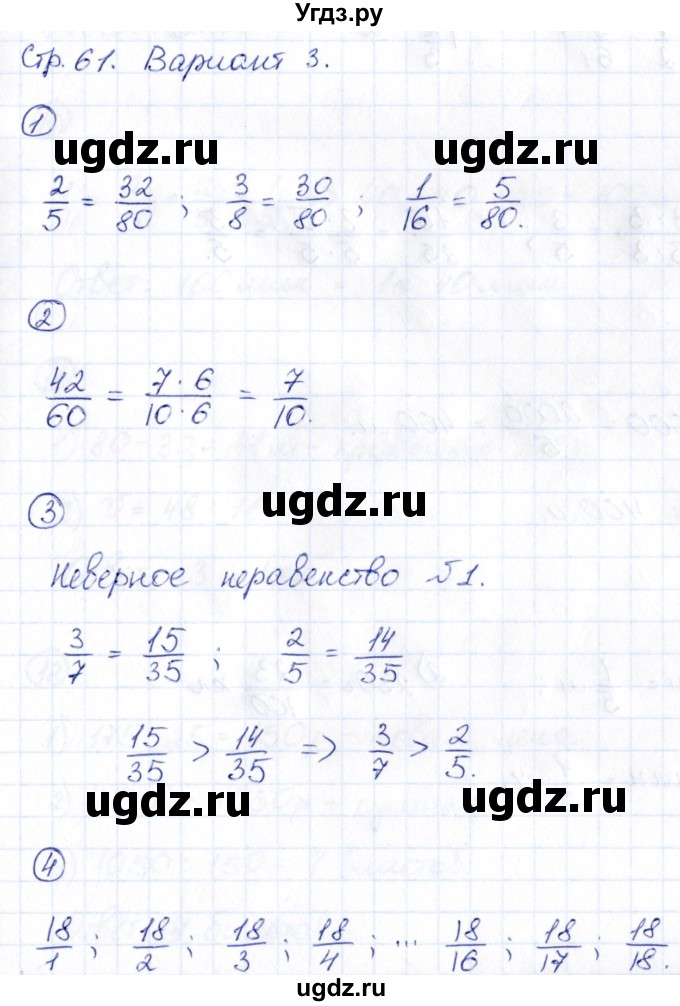 Угдз.ру
Стр. 61. Вариант 3.
1
ugdz.ru ugdz.ru
2/5 = 32/80 ; 3/8 = 30/80 ; 1/16 = 5/80.
2
42/60 = 7·6/10·6 = 7/10.
ugdz.ru
3
ugdz.ru
Неверное неравенство №1.
3/7 = 15/35 ; 2/5 = 14/35
15/35 > 14/35 => 3/7 > 2/5.
ugdz.ru ugdz.ru
4
18/1 ; 18/2 ; 18/3 ; 18/4 ; ... 18/16 ; 18/17 ; 18/18.
ugdz.ru